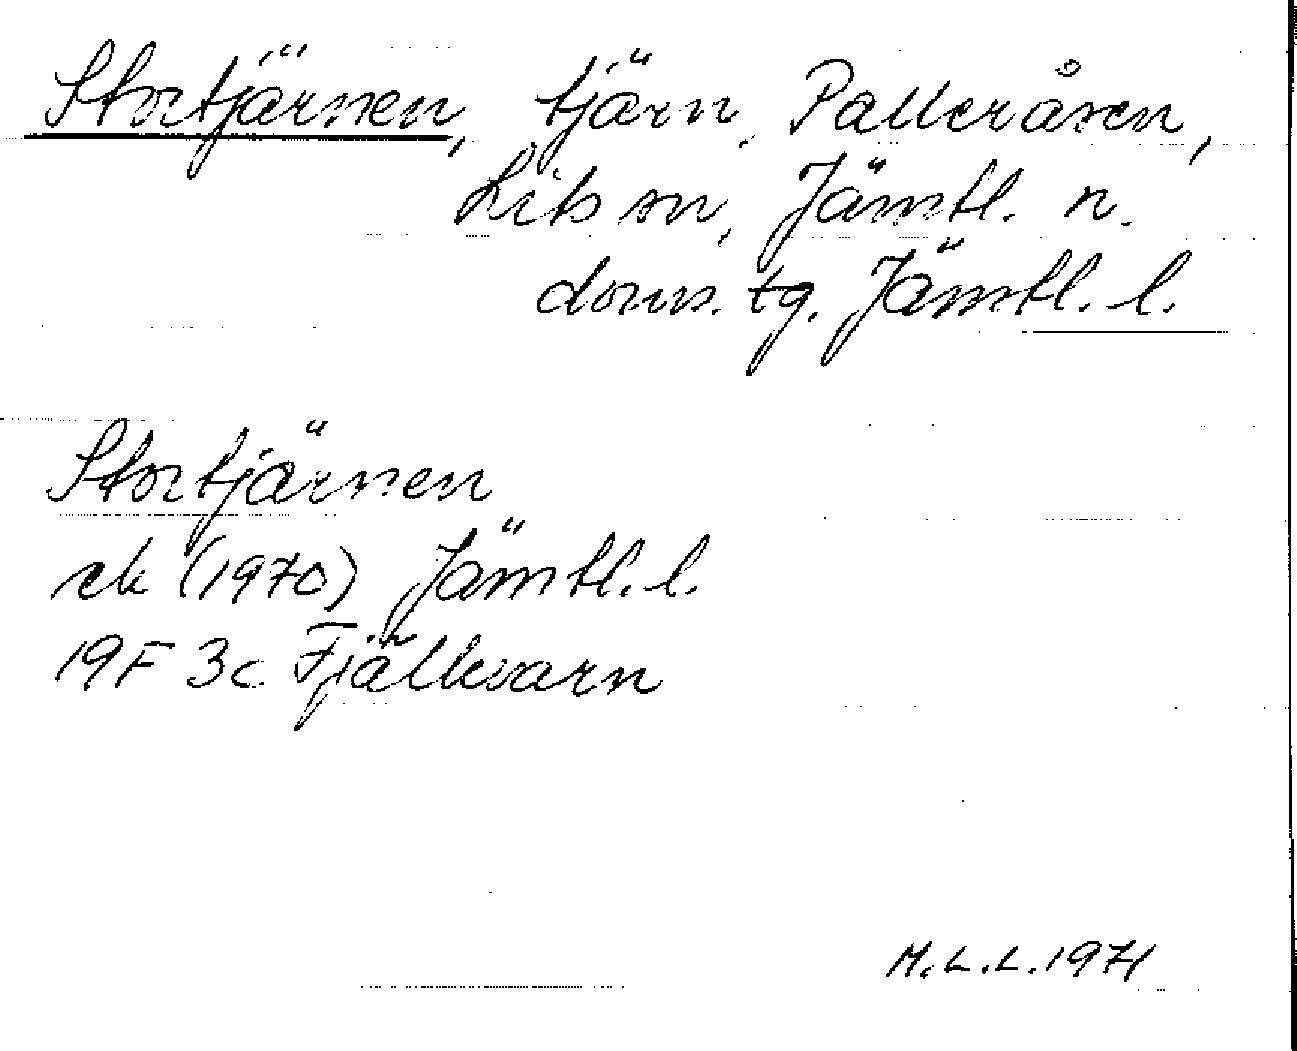 Stortjärnen, tjärn, Palleråsen,
Lits sn, Jämtl. n.
doms. tg. Jämtl. l.
Stortjärnen
ek (1970) Jämtl. l.
19F 3c Fjällkvarn
M.L.L. 1971